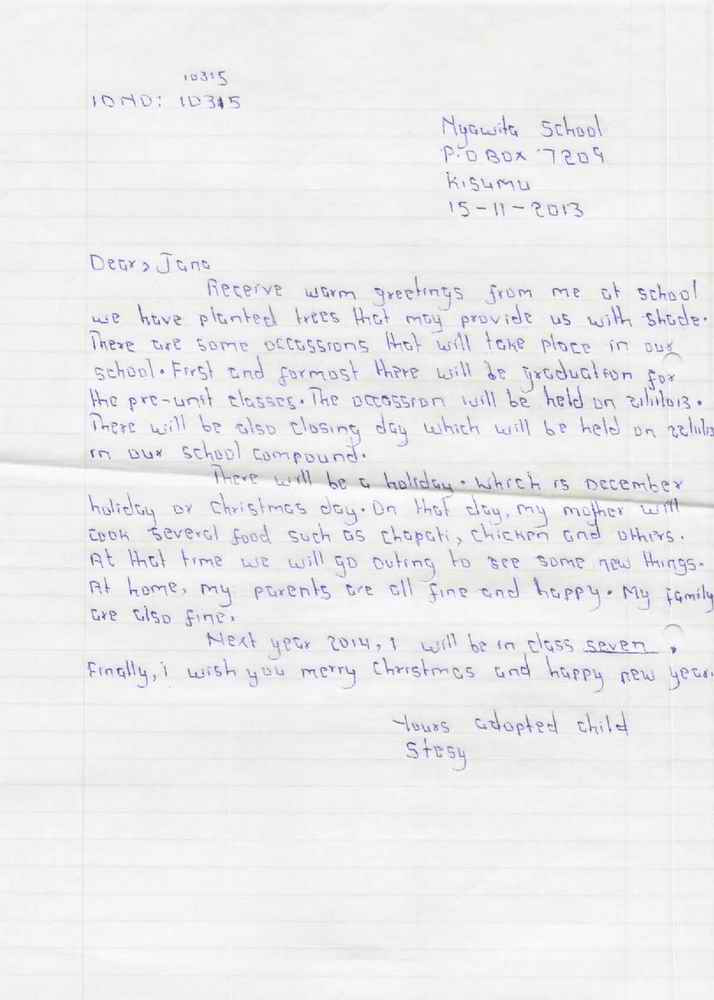 10315
ID NO: 10315
Nyawita School
P.O BOX 7209
Kisumu
15-11-2013
Dear, Jana
Receive warm greetings from me at school
we have planted trees that may provide us with shade.
There are some occassions that will take place in our
school. First and formost there will be graduation for
the pre-unit classes. The occassion will be held on 21/11/013.
There will be also closing day which will be held on 22/11/13
in our school compound.
There will be a holiday. which is December
holiday or christmas day. On that day, my mother will
cook several food such as chapati, chicken and others.
At that time we will go outing to see some new things.
At home, my parents are all fine and happy. My family
are also fine.
Next year 2014, i will be in class seven.
Finally, i wish you merry christmas and happy new year.
Yours adopted child
Stesy